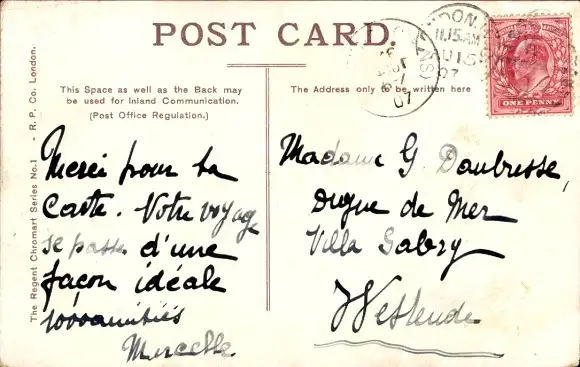 POST CARD.
This Space as well as the Back may
be used for Inland Communication.
(Post Office Regulation.)
The Address only to be written here
The Regent Chromart Series No.1 - R. P. Co. London.
LONDON
11.15AM
07
07
ONE PENNY
Merci pour ta
Carte. Notre voyage
se passe d'une
façon idéale
1000 amitiés
Marcelle.
Madame G. Daubresse,
Digue de Mer
Villa Gabry
Westende